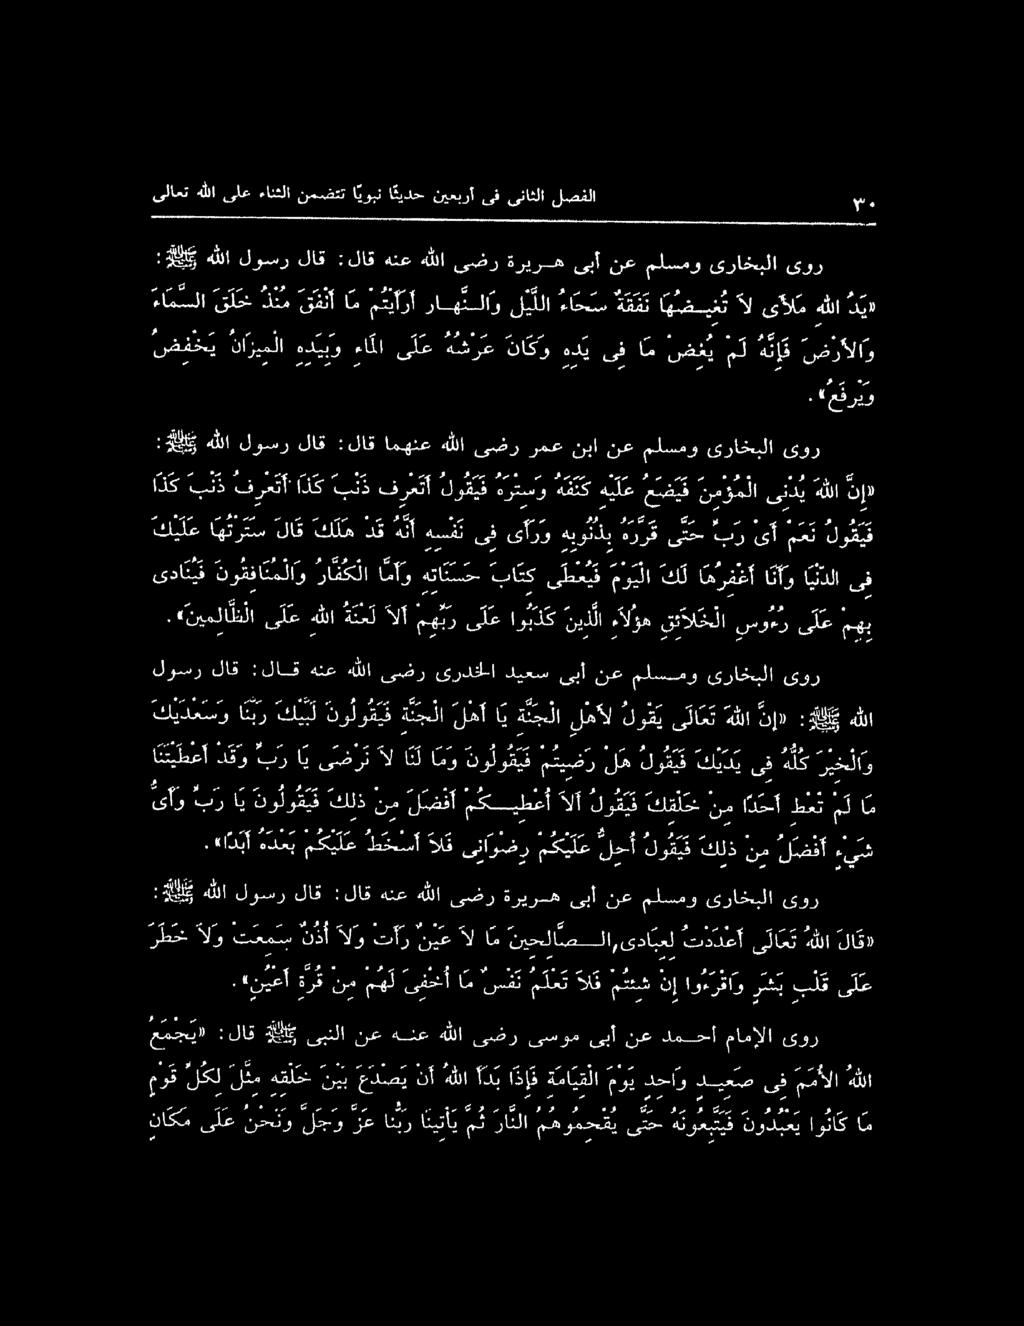 ٣٠ الفصل الثانى فى أربعين حديثًا نبويًا تتضمن الثناء على الله تعالى
روى البخارى ومسلم عن أبى هـريرة رضى الله عنه قال: قال رسول الله ﷺ:
«يَدُ اللهِ مَلأَى لاَ تُغِيـضُهَا نَفَقَةٌ سَحَاءُ اللَّيْلِ وَالـنَّهـارِ أَرَأَيْتُمْ مَا أَنْفَقَ مُنْذُ خَلَقَ السَّمَاءَ
وَالأَرْضَ فَإِنَّهُ لَمْ يُغِضْ مَا فِى يَدِهِ وَكَانَ عَرْشُهُ عَلَى الْمَاءِ وَبِيَدِهِ الْمِيزَانُ يَخْفِضُ
وَيْرفَعُ».
روى البخارى ومسلم عن ابن عمر رضى الله عنهما قال: قال رسول الله ﷺ:
«إِنَّ اللهَ يُدْنِى الْمُؤْمِنَ فَيَضَعُ عَلَيْهِ كَنَفَهُ وَسِتْرَهُ فَيَقُولُ أَتَعْرِف ذَنْبَ كَذَا أَتَعْرِفُ ذَنْبَ كَذَا
فَيَقُولُ نَعَمْ أَىْ رَبِّ حَتَّى قَرَّرَهُ بِذُنُوبِهِ وَرَأَى فِى نَفْسِهِ أَنَّهُ قَدْ هَلَكَ قَالَ سَتَرْتُهَا عَلَيْكَ
فِى الدُّنْيَا وَأَنَا أَغْفِرُهَا لَكَ الْيَوْمَ فَيُعْطَى كِتَابَ حَسَنَاتِهِ وَأَمَّا الْكُفَّارُ وَالْمُنَافِقُونَ فَيُنَادى
بِهِمْ عَلَى رُءُوسِ الْخَلاَئِقِ هؤُلاَءِ الَّذِينَ كَذَبُوا عَلَى رَبِّهِمْ أَلاَ لَعْنَةُ اللهِ عَلَى الظَّالِمِينَ».
روى البخارى ومـسلم عن أبى سعيد الخدرى رضى الله عنه قـال: قال رسول
الله ﷺ: «إِنَّ اللهَ تَعَالَى يَقُولُ لأَهْلِ الْجَنَّةِ يَا أَهْلَ الْجَنَّةِ فَيَقُولُونَ لَبَّيْكَ رَبَّنَا وَسَعْدَيْكَ
وَالْخَيْرَ كُلُّهُ فِى يَدَيْكَ فَيَقُولُ هَلْ رَضِيتُمْ فَيَقُولُونَ وَمَا لَنَا لاَ نَرْضَى يَا رَبِّ وَقَدْ أَعْطَيْتَنَا
مَا لَمْ تُعْطِ أَحَدًا مِنْ خَلْقِكَ فَيَقُولُ أَلاَ أُعْطِيـكُمْ أَفْضَلَ مِنْ ذلِكَ فَيَقُولُونَ يَا رَبِّ وَأَىُّ
شَىْءٍ أَفْضَلُ مِنْ ذلِكَ فَيَقُولُ أُحِلُّ عَلَيْكُمْ رِضْوَانِى فَلاَ أَسْخَطُ عَلَيْكُمْ بَعْدَهُ أَبَدًا».
روى البخارى ومسلم عن أبى هـريرة رضى الله عنه قال: قال رسول الله ﷺ:
«قَالَ اللهُ تَعَالَى أَعْدَدْتُ لِعِبَادِى الـصَّالِحِينَ مَا لاَ عَيْنٌ رَأَتْ وَلاَ أُذُنٌ سَمِعَتْ وَلاَ خَطَرَ
عَلَى قَلْبِ بَشَرٍ وَاقْرَءُوا إِنْ شِئْتُمْ فَلاَ تَعْلَمُ نَفْسٌ مَا أُخْفِىَ لَهُمْ مِنْ قُرَّةِ أَعْيُنٍ».
روى الإمام أحـمد عن أبى موسى رضى الله عنـه عن النبى ﷺ قال: «يَجْمَعُ
اللهُ الأُمَمَ فِى صَعِيـدٍ وَاحِدٍ يَوْمَ الْقِيَامَةِ فَإِذَا بَدَأَ اللهُ أَنْ يَصْدَعَ بَيْنَ خَلْقِهِ مَثَّلَ لِكُلِّ قَوْمٍ
مَا كَانُوا يَعْبُدُونَ فَيَتَّبِعُونَهُ حَتَّى يُقْحِمُوهُمُ النَّارَ ثُمَّ يَأْتِينَا رَبُّنَا عَزَّ وَجَلَّ وَنَحْنُ عَلَى مَكَانٍ